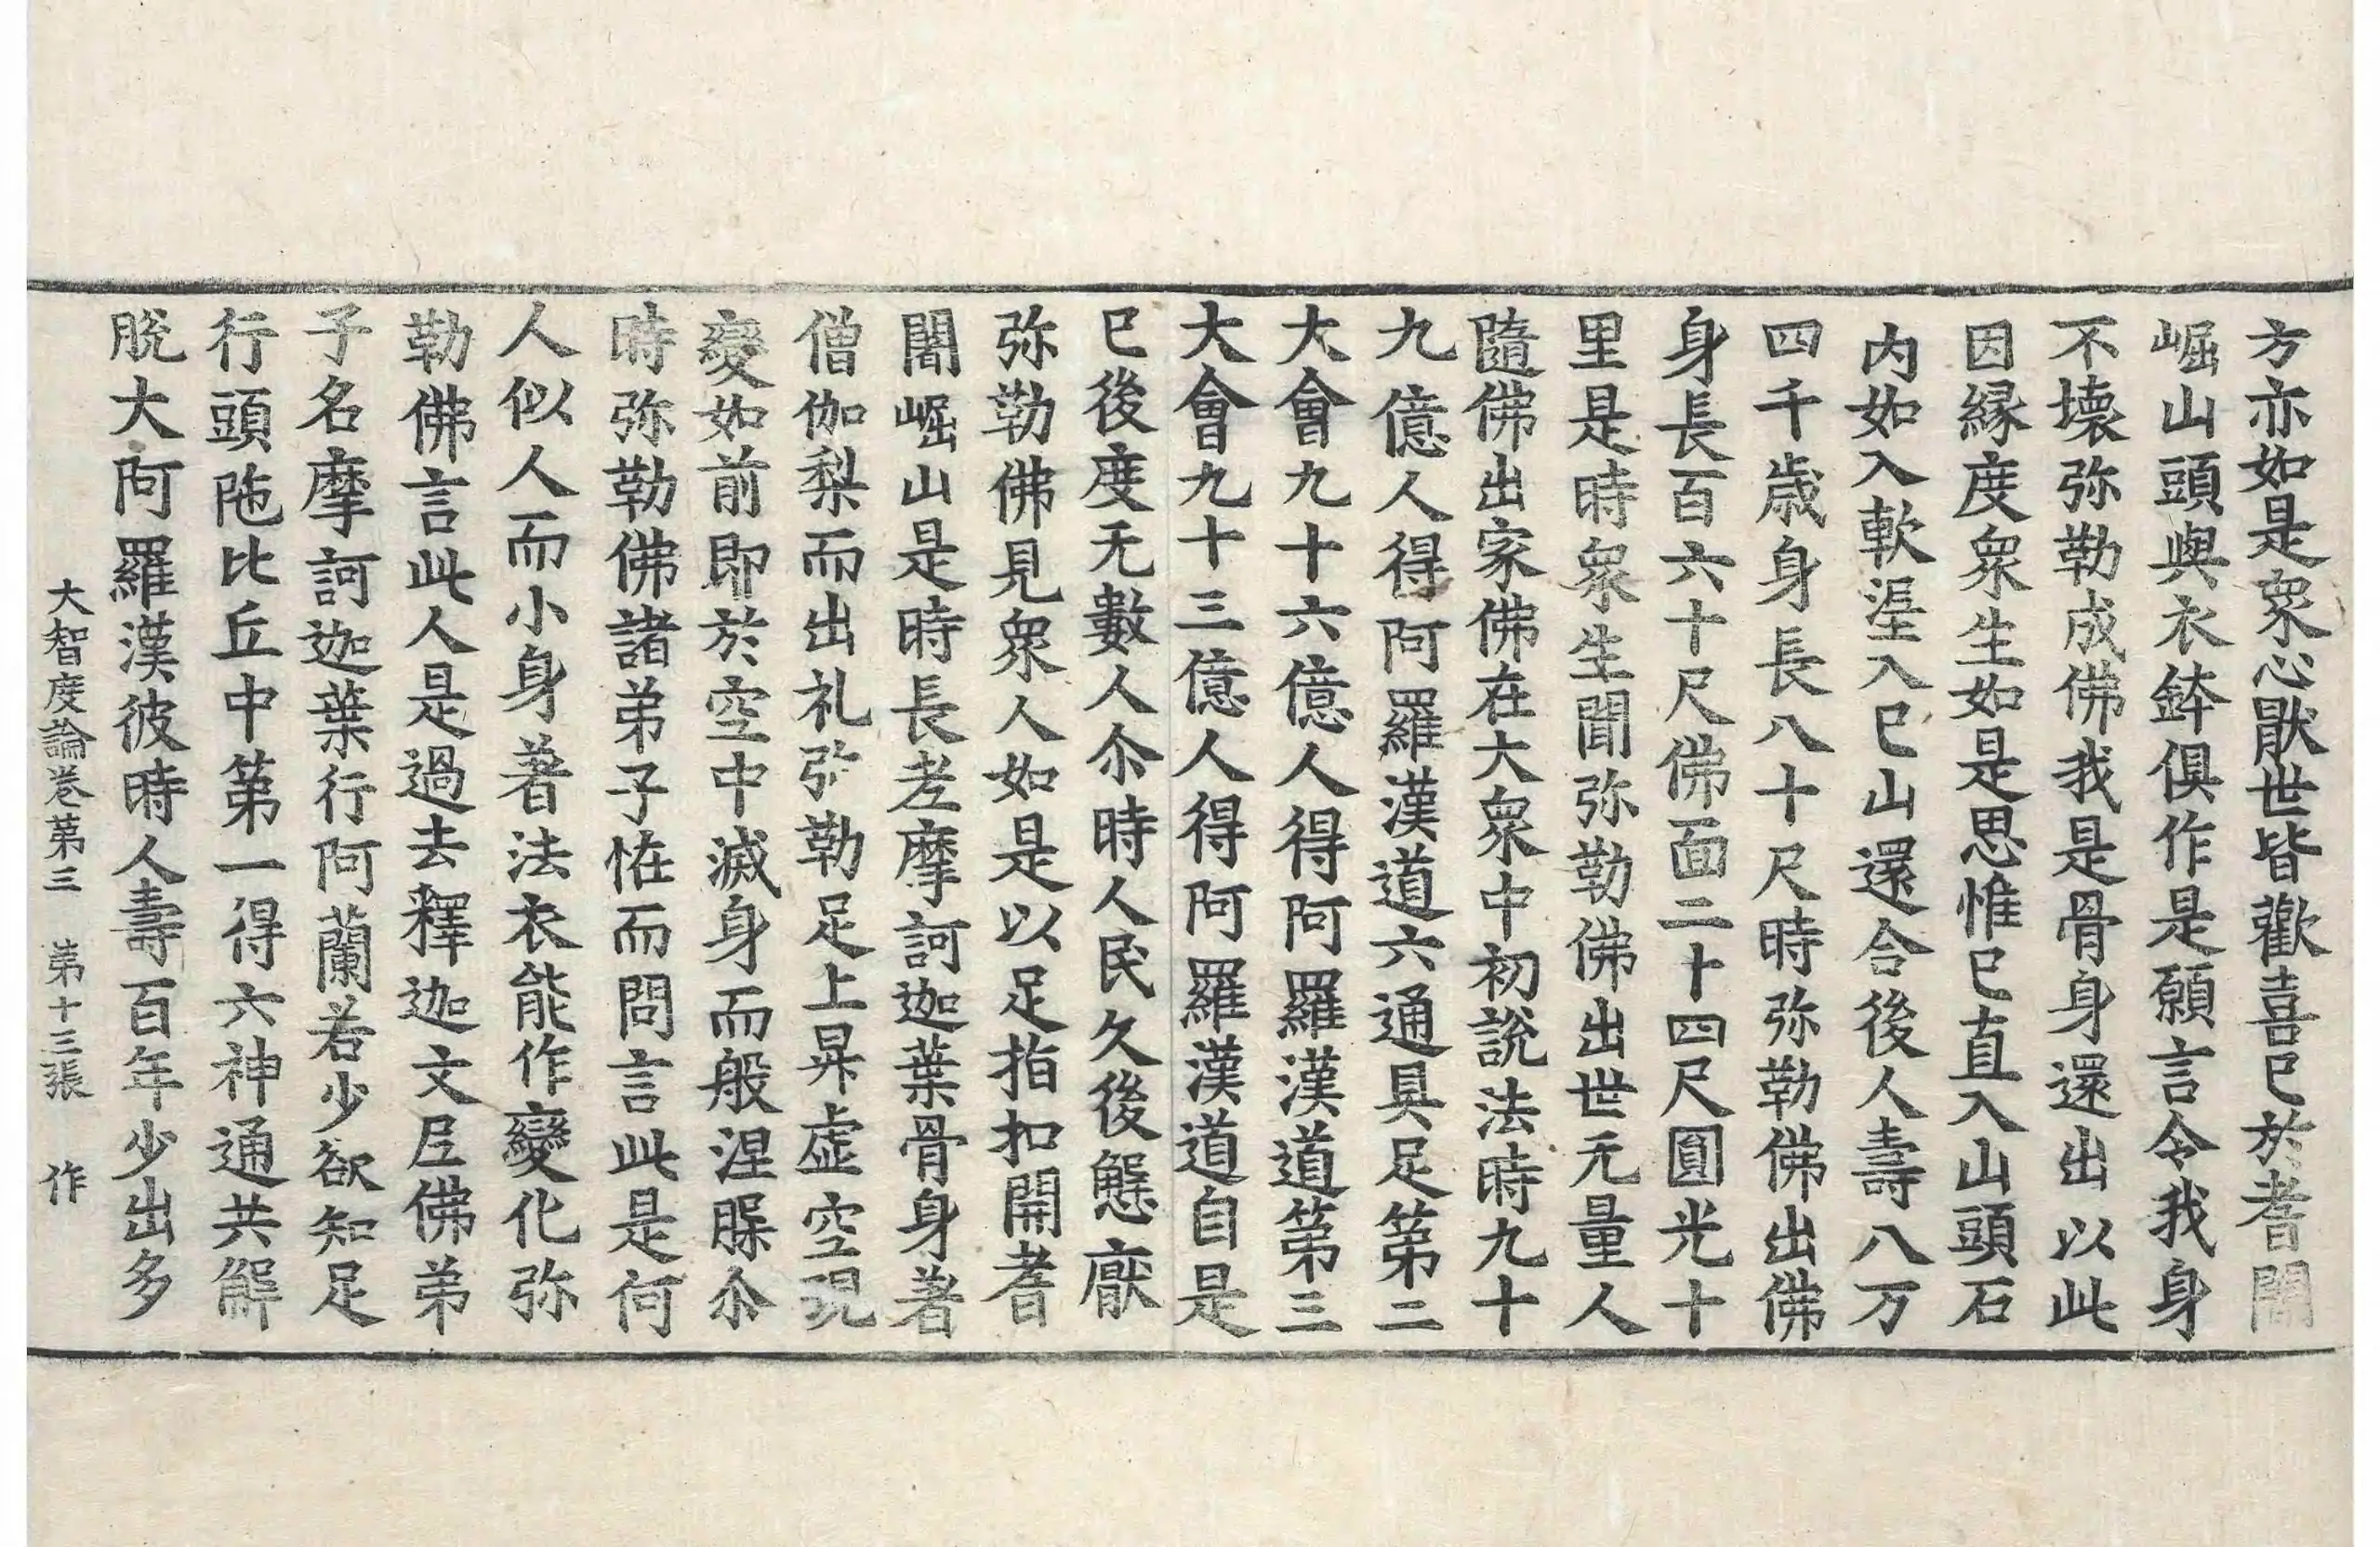 方亦如是衆心猒世皆歡喜已於耆闍
崛山頭與衣鉢俱作是願言令我身
不壞弥勒成佛我是骨身還出以此
因縁度衆生如是思惟已直入山頭石
内如入軟埿入已山還合後人壽八万
四千歳身長八十尺時弥勒佛出佛
身長百六十尺佛面二十四尺圓光十
里是時衆生聞弥勒佛出世无量人
隨佛出家佛在大衆中初說法時九十
九億人得阿羅漢道六通具足第二
大會九十六億人得阿羅漢道第三
大會九十三億人得阿羅漢道自是
已後度无數人尒時人民久後懈厭
弥勒佛見衆人如是以足指扣開耆
闍崛山是時長老摩訶迦葉骨身著
僧伽梨而出礼弥勒足上昇虛空現
變如前即於空中滅身而般涅槃尒
時弥勒佛諸弟子恠而問言此是何
人似人而小身著法衣能作變化弥
勒佛言此人是過去釋迦文尼佛弟
子名摩訶迦葉行阿蘭若少欲知足
行頭陁比丘中第一得六神通共解
脫大阿羅漢彼時人壽百年少出多
大智度論卷第三 第十三張 作